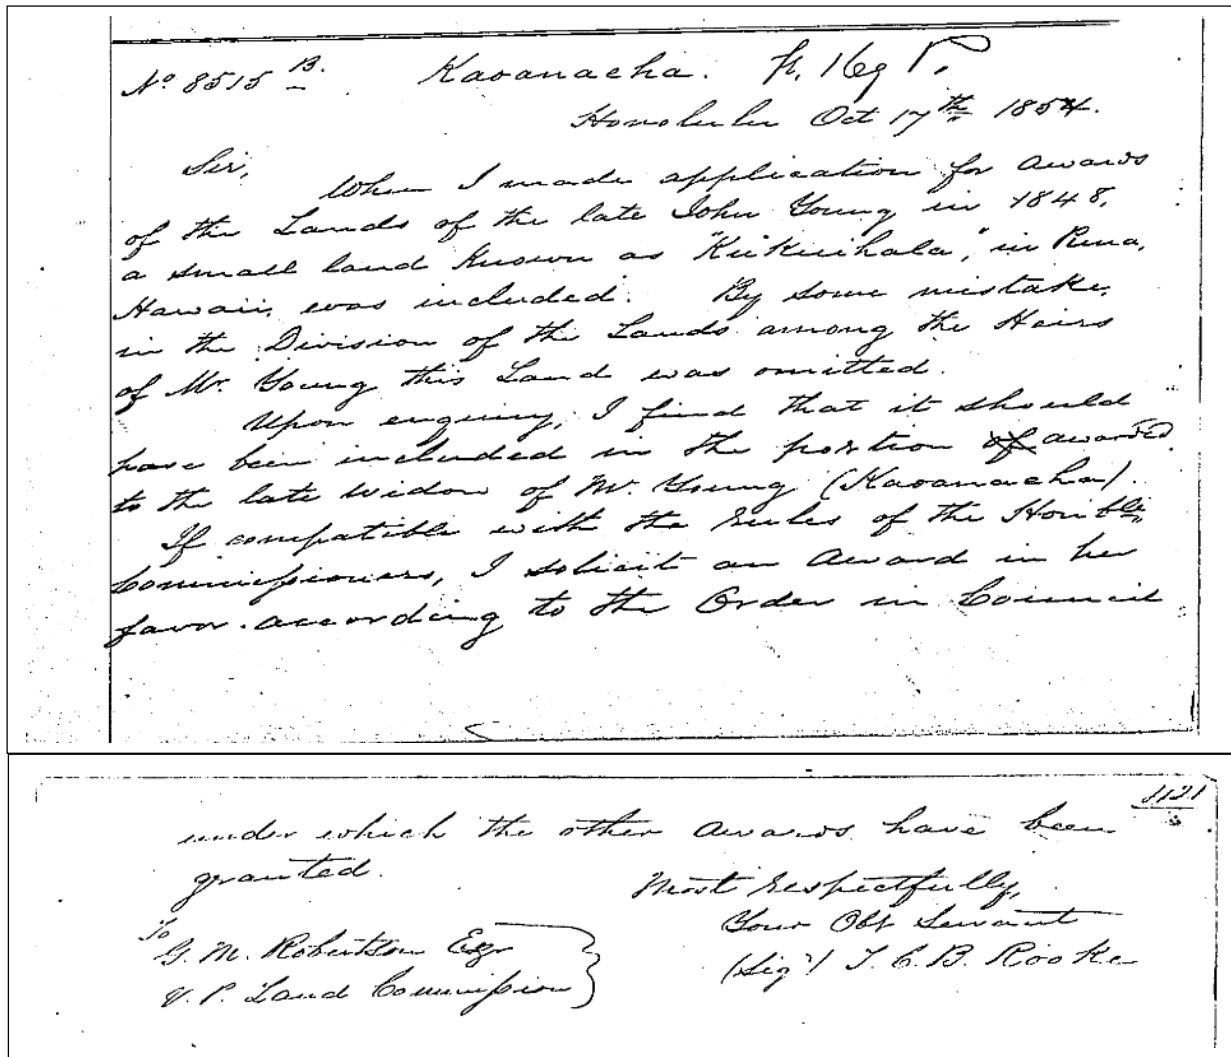 No. 8515 B. Kaoanaeha.
Honolulu Oct 17th 1854.
Sir,
When I made application for awards
of the Lands of the late John Young in 1848,
a small land known as "Kukuihala", in Puna,
Hawaii, was included. By some mistake,
in the Division of the Lands among the Heirs
of Mr. Young this Land was omitted.
Upon enquiry, I find that it should
have been included in the portion of awarded
to the late Widow of Mr. Young (Kaoanaeha).
If compatible with the rules of the Honble
Commissioners, I solicit an Award in her
favor according to the Order in Council
1121
under which the other awards have been
granted.
Most respectfully,
Your Obt Servant
(Sigd) T. C. B. Rooke
To
G. M. Robertson Esqr
V. P. Land Commission